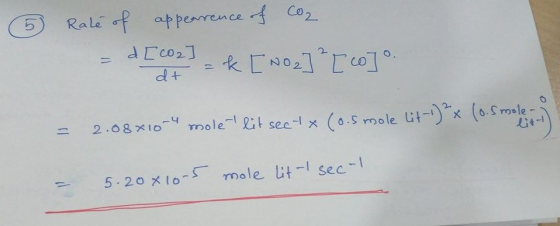 ⑤ Rale of appearence of CO₂
= d[CO₂]/dt = k [NO₂]² [CO]⁰.
= 2.08×10⁻⁴ mole⁻¹ lit sec⁻¹ × (0.5 mole lit⁻¹)² × (0.5 mole lit⁻¹)⁰
= 5.20 × 10⁻⁵ mole lit⁻¹ sec⁻¹